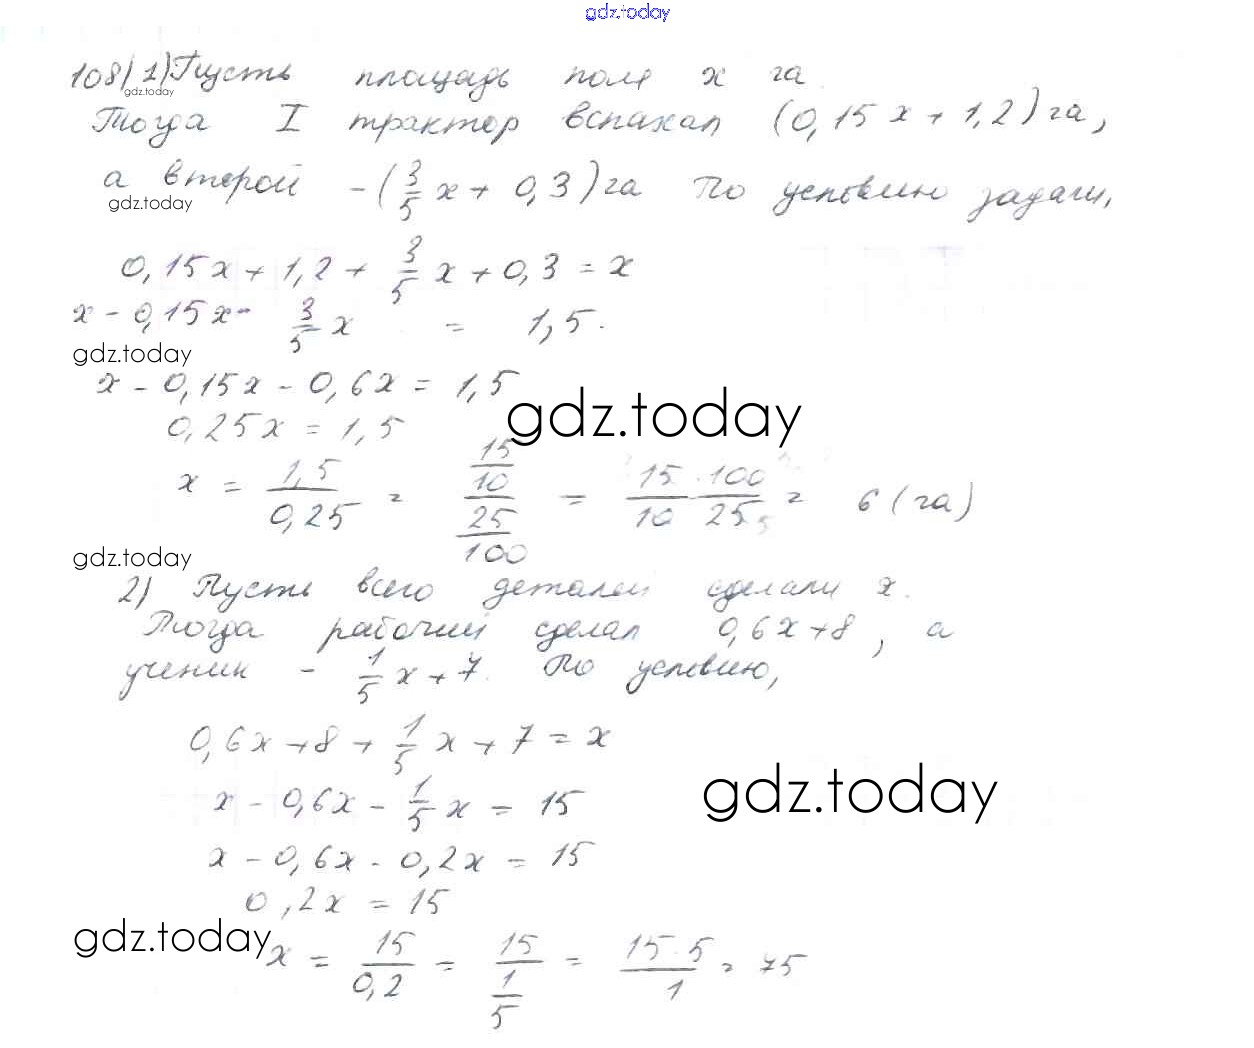 gdz.today
108) 1) Пусть площадь поля x га.
gdz.today
Тогда I трактор вспахал (0,15x + 1,2) га,
а второй - (3/5 x + 0,3) га По условию задачи,
gdz.today
0,15x + 1,2 + 3/5 x + 0,3 = x
x - 0,15x - 3/5 x = 1,5.
gdz.today
x - 0,15x - 0,6x = 1,5
gdz.today
0,25x = 1,5
x = 1,5/0,25 = (15/10)/(25/100) = 15/10 · 100/25 = 6 (га)
gdz.today
2) Пусть всего деталей сделали x.
Тогда рабочий сделал 0,6x+8, а
ученик - 1/5 x + 7. По условию,
0,6x + 8 + 1/5 x + 7 = x
x - 0,6x - 1/5 x = 15
gdz.today
x - 0,6x - 0,2x = 15
0,2x = 15
gdz.today
x = 15/0,2 = 15/(1/5) = 15·5/1 = 75